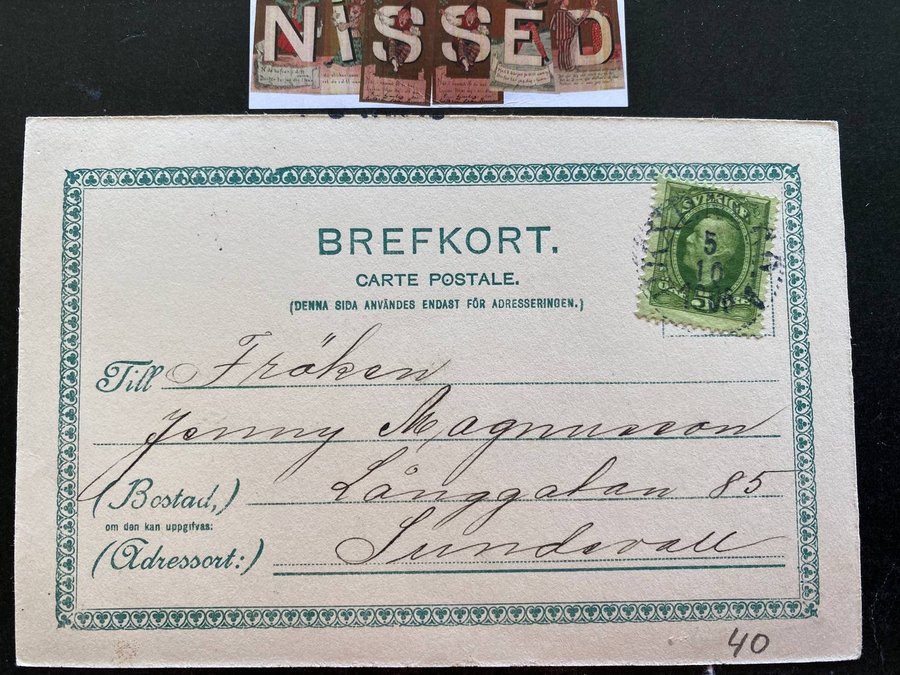 NISSED
BREFKORT.
CARTE POSTALE.
(DENNA SIDA ANVÄNDES ENDAST FÖR ADRESSERINGEN.)
SVERIGE
5
10
Till Fröken
Jenny Magnusson
(Bostad,) Långgatan 85
om den kan uppgifvas:
(Adressort:) Sundsvall
40